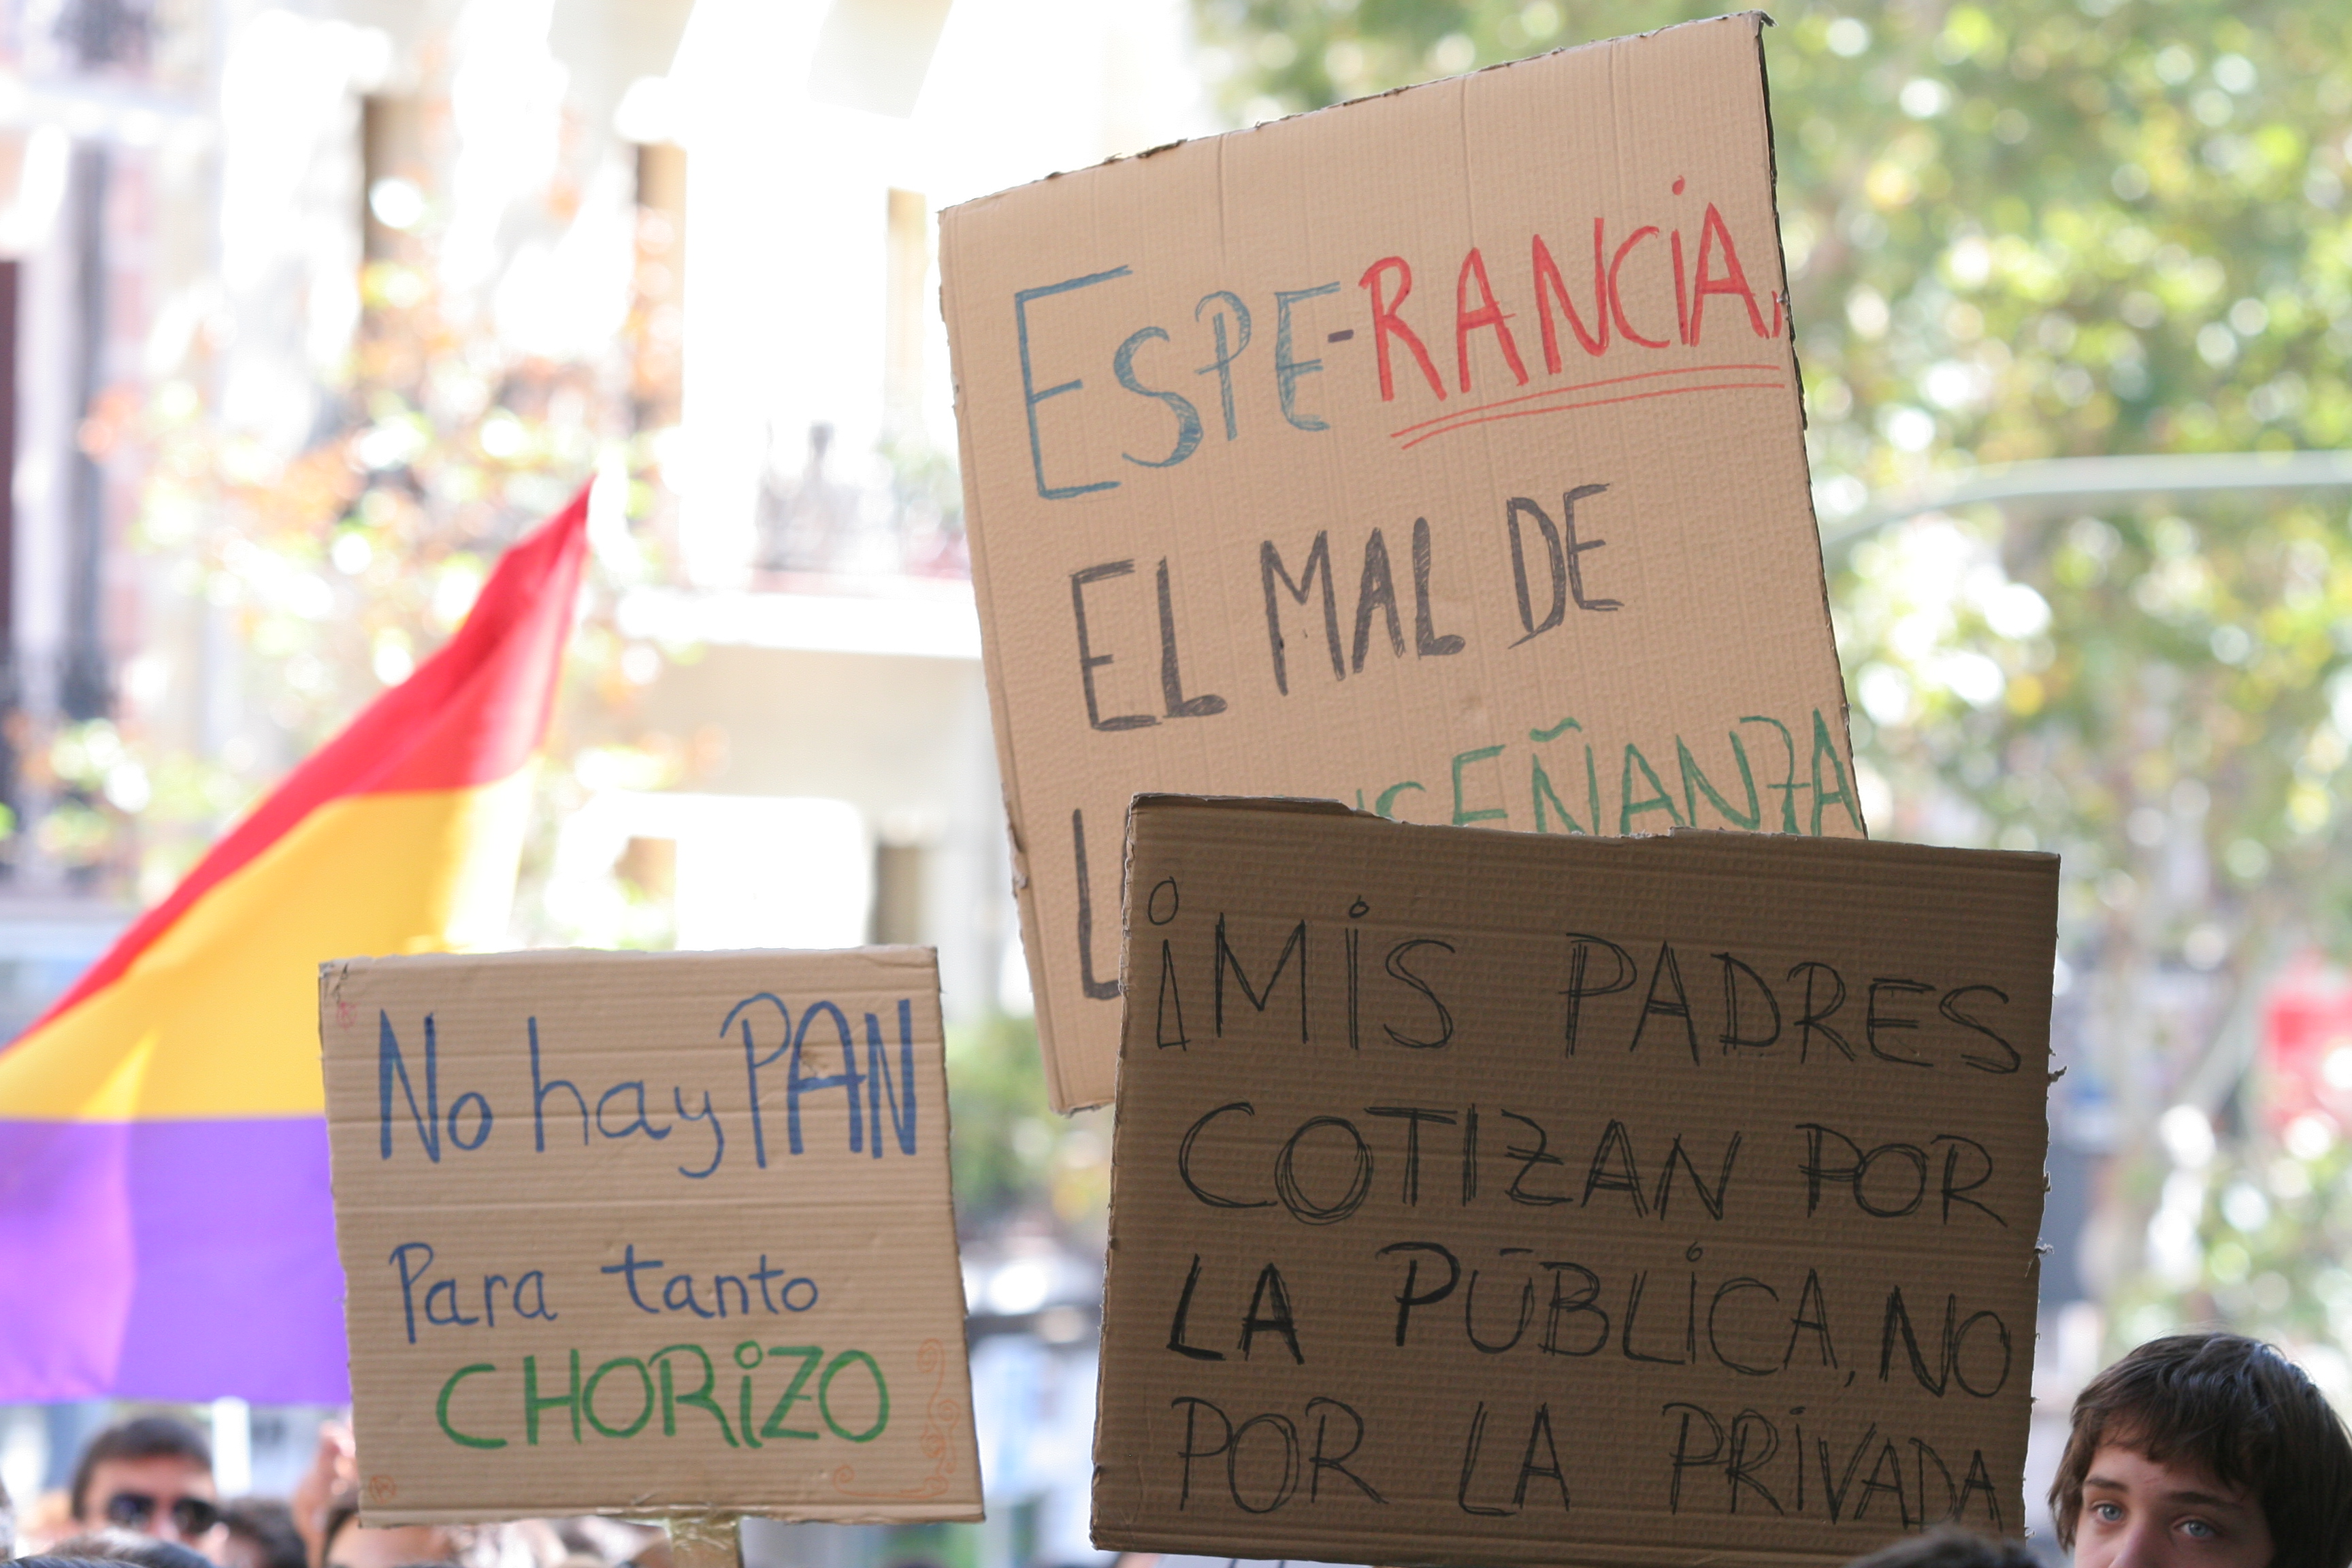 ESPE-RANCIA,
EL MAL DE
SEÑANZA
No hay PAN
Para tanto
CHORIZO
¡MIS PADRES
COTIZAN POR
LA PÚBLICA, NO
POR LA PRIVADA